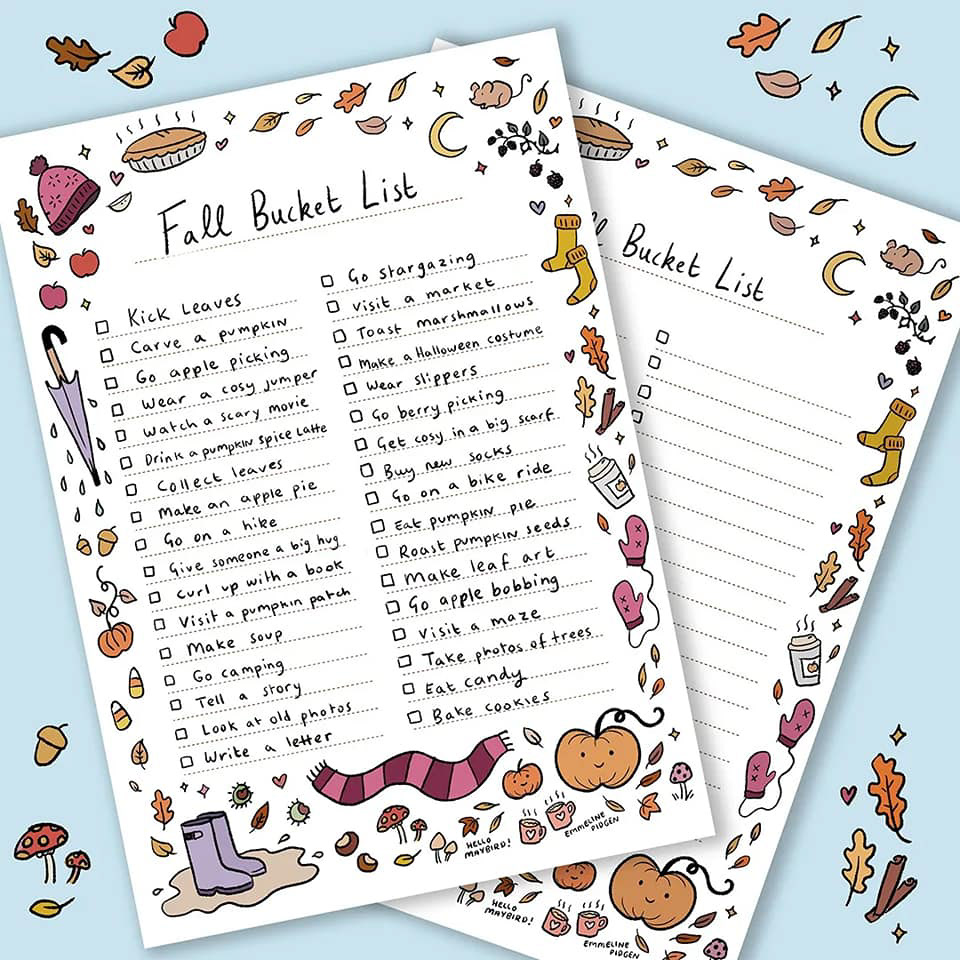 Fall Bucket List
Kick Leaves
Carve a pumpkin
Go apple picking
Wear a cosy jumper
Watch a scary movie
Drink a pumpkin spice latte
Collect leaves
Make an apple pie
Go on a hike
Give someone a big hug
Curl up with a book
Visit a pumpkin patch
Make soup
Go camping
Tell a story
Look at old photos
Write a letter
Go stargazing
Visit a market
Toast marshmallows
Make a Halloween costume
Wear slippers
Go berry picking
Get cosy in a big scarf
Buy new socks
Go on a bike ride
Eat pumpkin pie
Roast pumpkin seeds
Make leaf art
Go apple bobbing
Visit a maze
Take photos of trees
Eat candy
Bake cookies
HELLO
MAYBIRD!
EMMELINE
PIDGEN
ll Bucket List
HELLO
MAYBIRD!
EMMELINE
PIDGEN